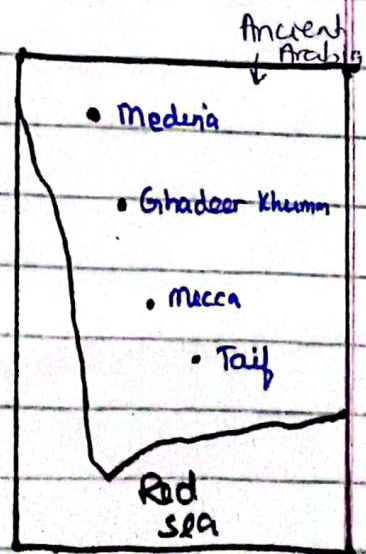 Ancient
Arabia
Medina
Ghadeer Khumm
Mecca
Taif
Red
sea